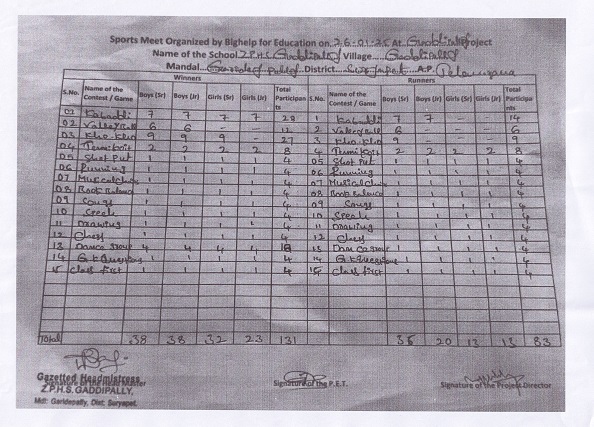 Sports Meet Organized by Bighelp for Education on 26-01-25 At Gaddipally Project
Name of the School Z.P.H.S. Gaddipally Village Gaddipally
Mandal District Suryapet A.P. Telangana
Winners Runners
S.No. Name of the Contest / Game Boys (Sr) Boys (Jr) Girls (Sr) Girls (Jr) Total Participants S.No. Name of the Contest / Game Boys (Sr) Boys (Jr) Girls (Sr) Girls (Jr) Total Participants
01 Kabaddi 7 7 7 7 28 1 Kabaddi 7 7 - - 14
02 Valleyball 6 6 - - 12 2 Valleyball 6 - - - 6
03 Kho-Kho 9 9 9 - 27 3 Kho-Kho 9 - - - 9
04 Tennikoit 2 2 2 2 8 4 Tennikoit 2 2 2 2 8
05 Shot Put 1 1 1 1 4 05 Shot Put 1 1 1 1 4
06 Running 1 1 1 1 4 06 Running 1 1 1 1 4
07 Musical Chair 1 1 1 1 4 07 Musical Chair 1 1 1 1 4
08 Book Balance 1 1 1 1 4 08 Book Balance 1 1 1 1 4
09 Songs 1 1 1 1 4 09 Songs 1 1 1 1 4
10 1 1 1 1 4 10 1 1 1 1 4
11 Drawing 1 1 1 1 4 11 Drawing 1 1 1 1 4
12 Chess 1 1 1 1 4 12 Chess 1 1 1 1 4
13 Dance Group 4 4 4 4 13 Dance Group 1 1 1 1 4
14 G.K Questions 1 1 1 1 4 14 G.K Questions 1 1 1 1 4
15 Class first 1 1 1 1 4 15 Class first 1 1 1 1 4
Total 38 38 32 23 131 35 20 13 83
Gazetted Headmistress
Signature of the Head Master Signature of the P.E.T. Signature of the Project Director
Z.P.H.S. GADDIPALLY,
Mdl: Garidepally, Dist: Suryapet.